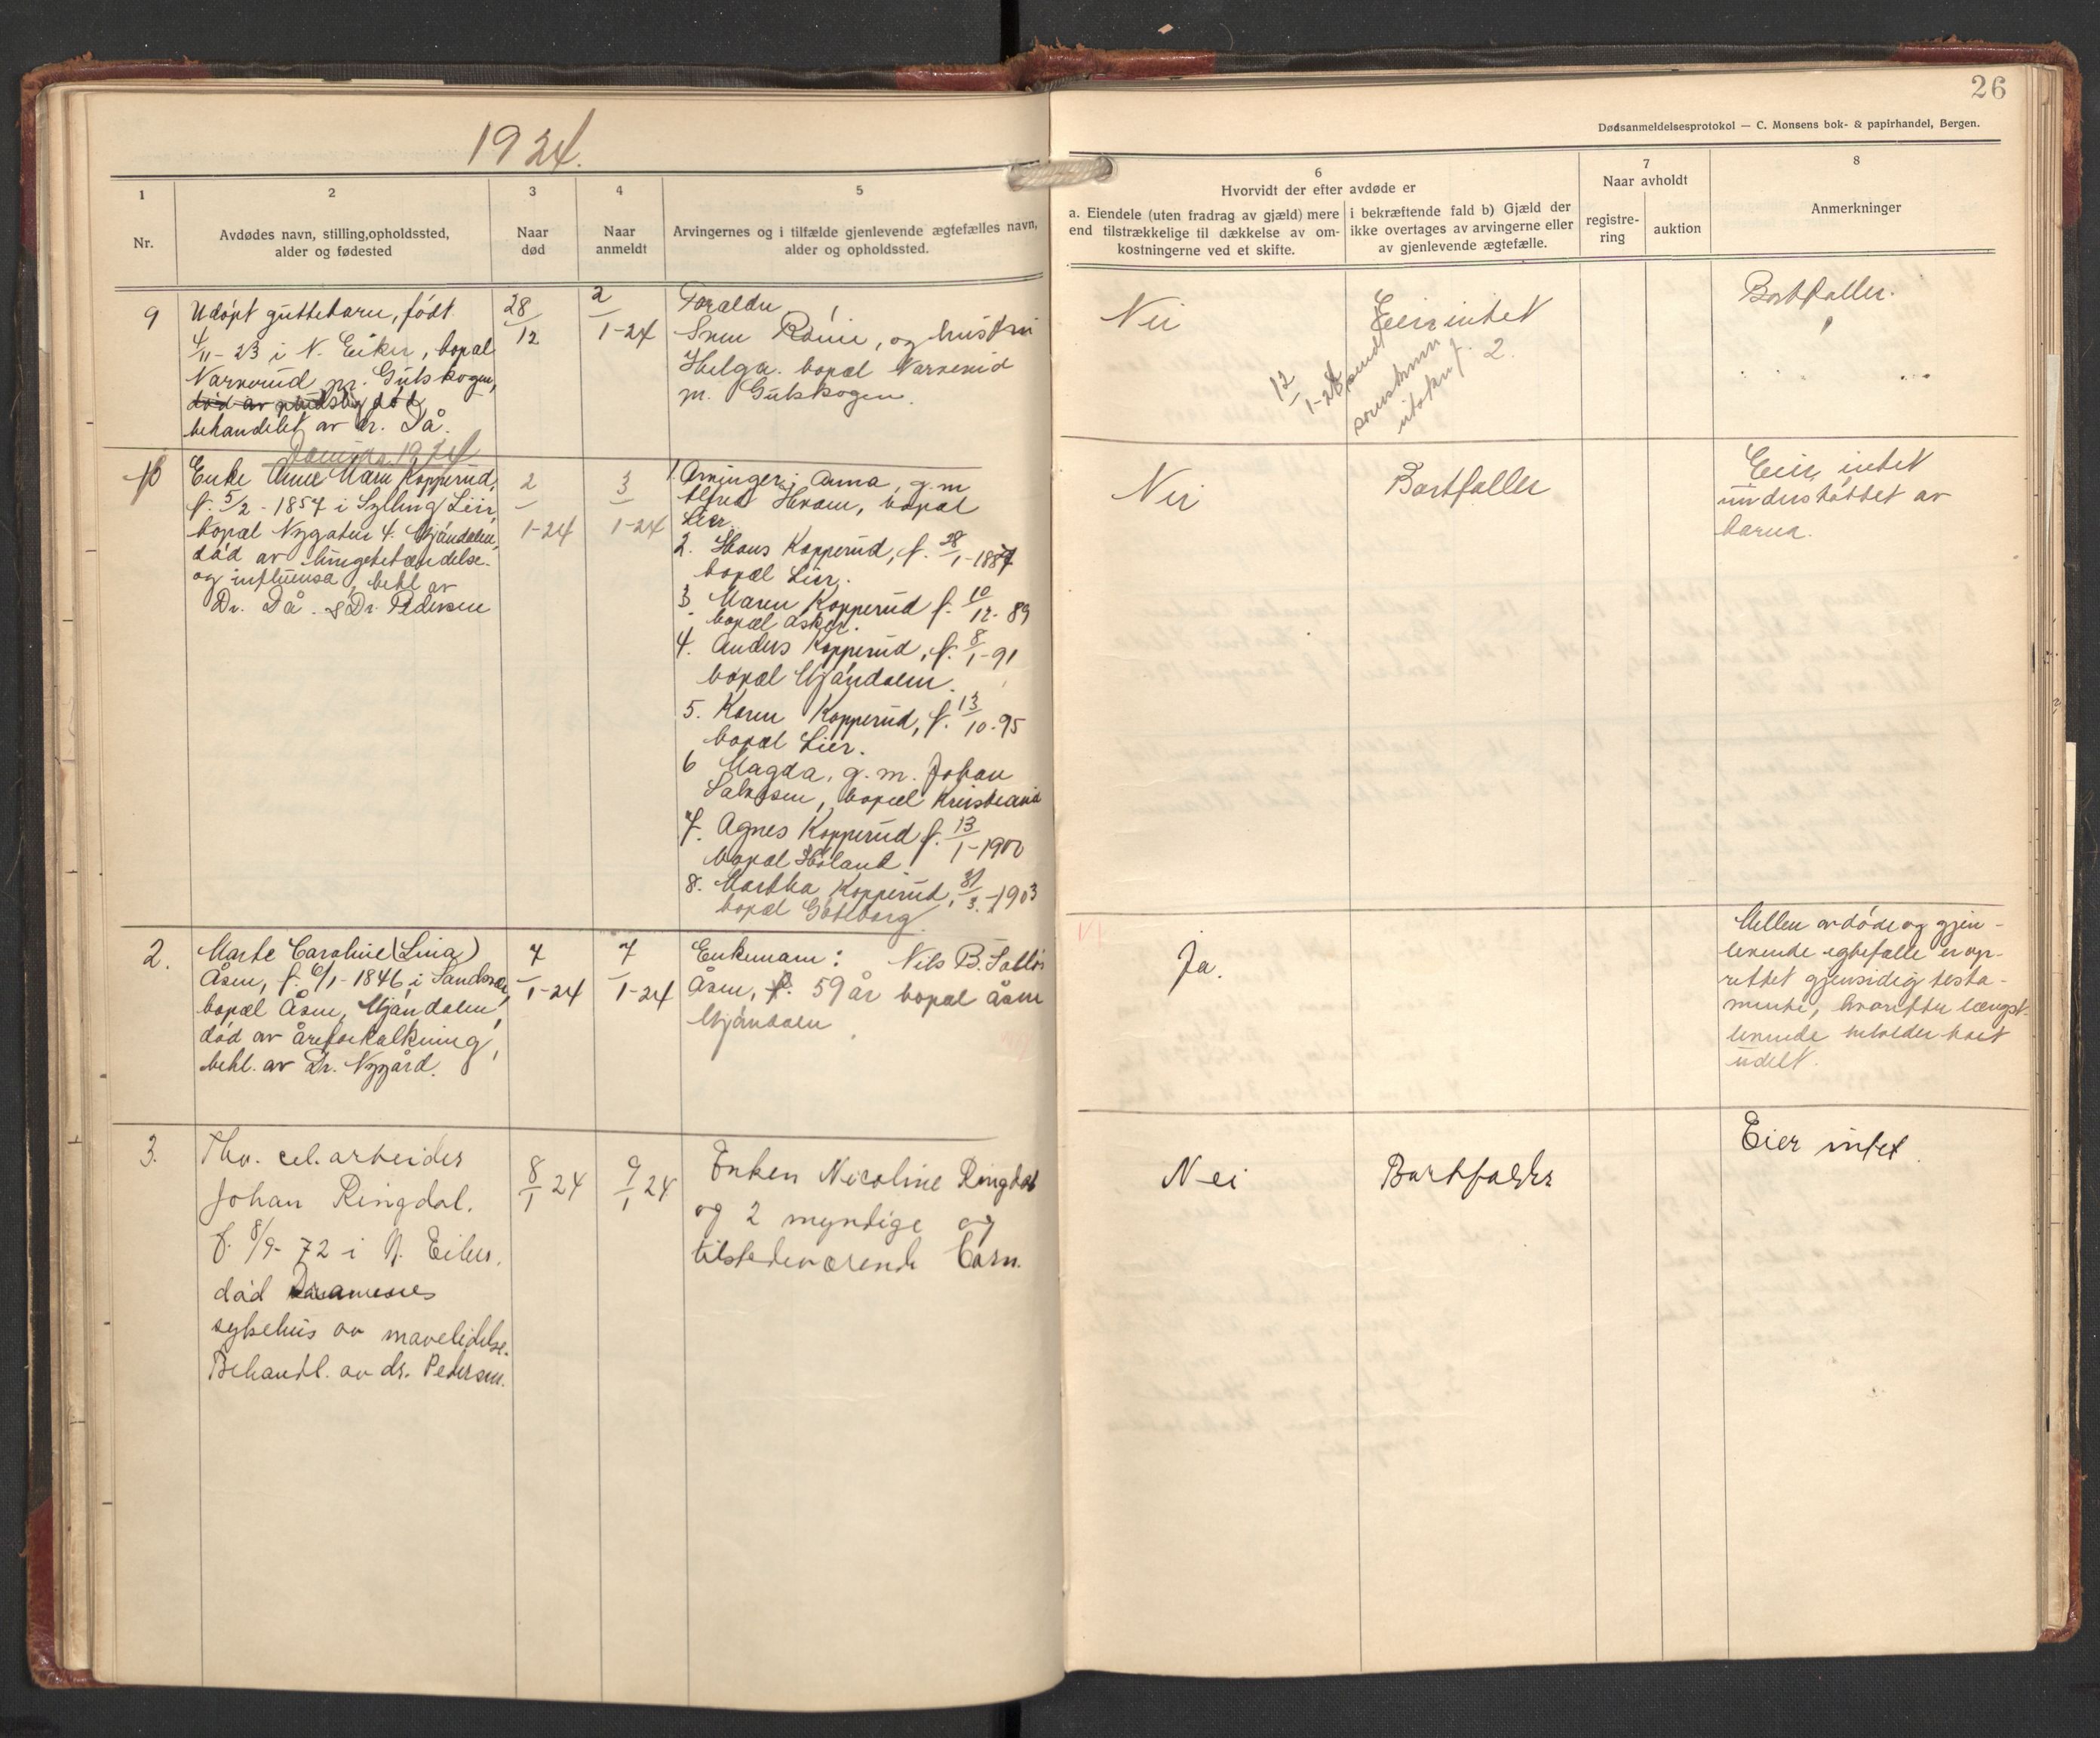 26
Dødsanmeldelsesprotokol — C. Monsens bok- & papirhandel, Bergen.
1924.
1
Nr.
2
Avdødes navn, stilling, opholdssted,
alder og fødested
3
Naar
død
4
Naar
anmeldt
5
Arvingernes og i tilfælde gjenlevende ægtefælles navn,
alder og opholdssted.
6
Hvorvidt der efter avdøde er
a. Eiendele (uten fradrag av gjæld) mere
end tilstrækkelige til dækkelse av om-
kostningerne ved et skifte.
i bekræftende fald b) Gjæld der
ikke overtages av arvingerne eller
av gjenlevende ægtefælle.
7
Naar avholdt
registre-
ring
auktion
8
Anmerkninger
9
Udøpt guttebarn, født
4/11-23 i N. Eiker, bopæl
Narverud pr. Gulskogen,
død av pludselig død
behandlet av dr. Då.
28/12
2/1-24
Foræeldre
og hustru
Helga. bopæl Narverud
pr. Gulskogen.
Nei
Eier intet
12/1-24 sendt
2.
Bortfaller.
Januar 1924
10
Enke Anne Marie Kopperud,
f. 5/2-1857 i Sylling Lier,
bopæl Nygaten 4. Mjøndalen,
død av lungebetændelse
og influensa, behl av
Dr. Då. & Dr. Pedersen
2/1-24
3/1-24
1. Arvinger: Anna, g.m
Alfred Hvam, bopæl
Lier.
2. Hans Kopperud, f. 28/1-1887
bopæl Lier.
3. Maren Kopperud f. 10/12-89
bopæl Asker.
4. Anders Kopperud, f. 8/1-91
bopæl Mjøndalen.
5. Karen Kopperud, f. 13/10-95
bopæl Lier.
6 Magda, g.m. Johan
bopæl Kristiania
7. Agnes Kopperud f. 13/1-1900
bopæl Høland.
8. Martha Kopperud, 31/3-1903
bopæl Gøteborg
Nei
Bortfaller
Eier intet
understøttet av
barna.
2.
Marte Caroline (Lina)
Åsen, f. 6/1-1846 i Sandsvær,
bopæl Åsen, Mjøndalen,
død av åreforkalkning,
behl. av Dr. Nygård.
7/1-24
7/1-24
Enkemann: Nils B.
Åsen, f. 59 år bopæl Åsen
Mjøndalen
VI
Ja.
Mellem avdøde og gjen-
levende egtefælle er op-
rettet gjensidig testa-
mente, hvorefter længst-
levende beholder boet
udelt.
3.
Thv. cel. arbeider
Johan Ringdal.
f. 8/9-72 i N. Eiker.
død Drammens
sykehus av mavelidelse.
Behandl. av dr. Pedersen.
8/1 24
9/1 24
Enken Nicoline Ringdal
og 2 myndige og
tilstedeværende barn.
Nei
Bortfalder
Eier intet.